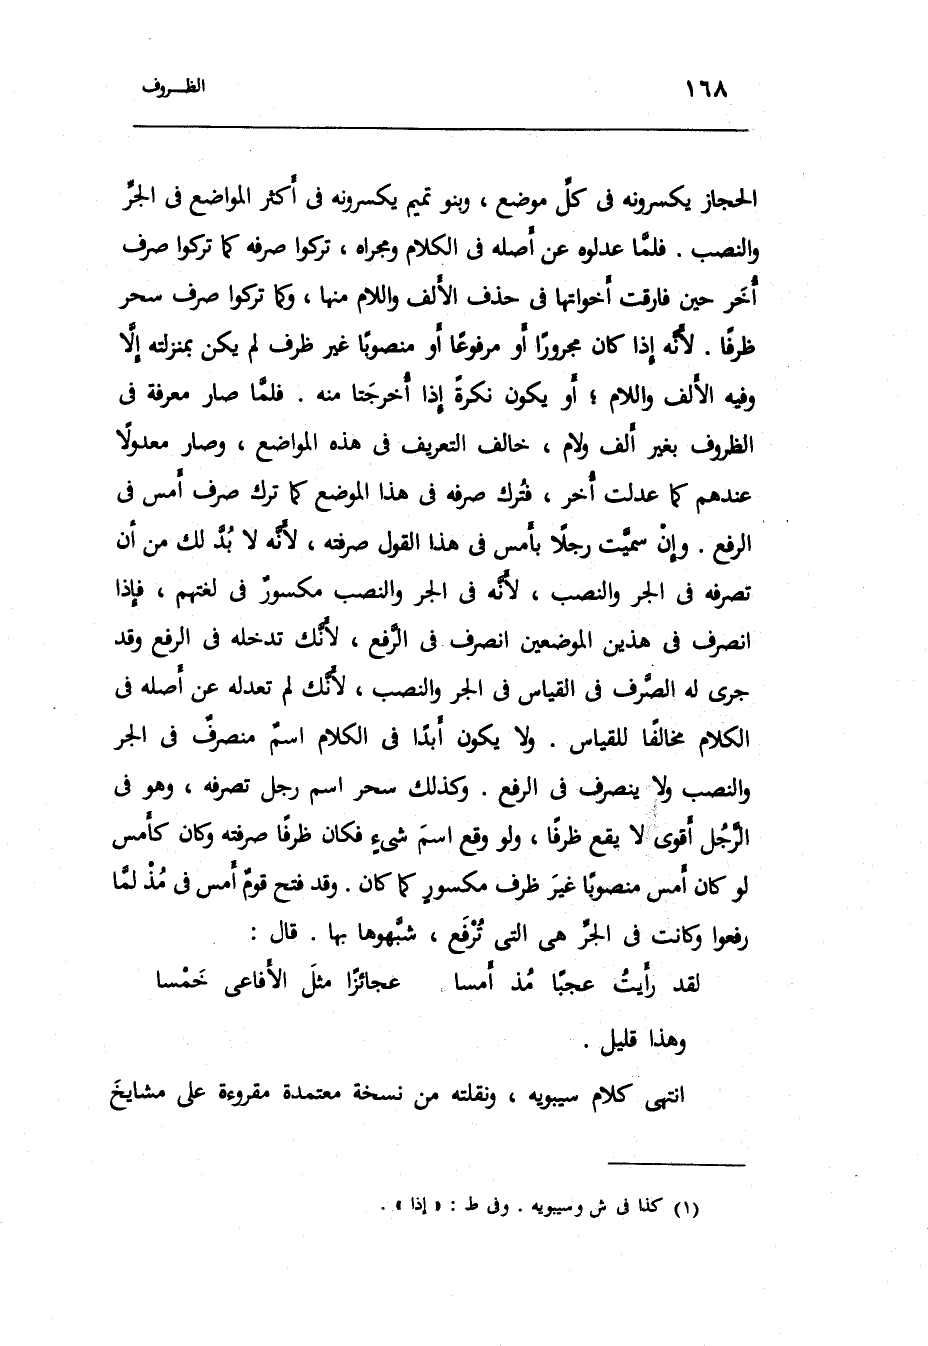 ١٦٨ الظـروف
الحجاز يكسرونه فى كلِّ موضع ، وبنو تميم يكسرونه فى أَكثر المواضع فى الجرِّ
والنصب . فلمَّا عدلوه عن أَصله فى الكلام ومجراه ، تركوا صرفه كما تركوا صرف
أُخَر حين فارقت أَخواتها فى حذف الأَلف واللام منها ، وكما تركوا صرف سحر
ظرفًا . لأَنَّه إِذا كان مجرورًا أَو مرفوعًا أَو منصوبًا غير ظرف لم يكن بمنزلته إِلَّا
وفيه الأَلف واللام ؛ أَو يكون نكرةً إِذا أُخرجَتا منه . فلمَّا صار معرفة فى
الظروف بغير أَلف ولام ، خالف التعريف فى هذه المواضع ، وصار معدولًا
عندهم كما عدلت أُخر ، فتُرك صرفه فى هذا الموضع كما ترك صرف أَمس فى
الرفع . وإِنْ سمَّيت رجلًا بأَمس فى هذا القول صرفته ، لأَنَّه لا بُدَّ لك من أَن
تصرفه فى الجر والنصب ، لأَنَّه فى الجر والنصب مكسورٌ فى لغتهم ، فإِذا
انصرف فى هذين الموضعين انصرف فى الرَّفع ، لأَنَّك تدخله فى الرفع وقد
جرى له الصَّرف فى القياس فى الجر والنصب ، لأَنَّك لم تعدله عن أَصله فى
الكلام مخالفًا للقياس . ولا يكون أَبدًا فى الكلام اسمٌ منصرفٌ فى الجر
والنصب ولا ينصرف فى الرفع . وكذلك سحر اسم رجل تصرفه ، وهو فى
الرَّجُل أَقوى لا يقع ظرفًا ، ولو وقع اسمَ شىءٍ فكان ظرفًا صرفته وكان كأَمس
لو كان أَمس منصوبًا غيرَ ظرف مكسورٍ كما كان . وقد فتح قومٌ أَمس فى مُذْ لمَّا
رفعوا وكانت فى الجرِّ هى التى تُرْفَع ، شبَّهوها بها . قال :
لقد رأَيتُ عجبًا مُذ أَمسا عجائزًا مثلَ الأَفاعى خَمْسا
وهذا قليل .
انتهى كلام سيبويه ، ونقلته من نسخة معتمدة مقروءة على مشايخَ
(١) كذا فى ش وسيبويه . وفى ط : « إذا » .